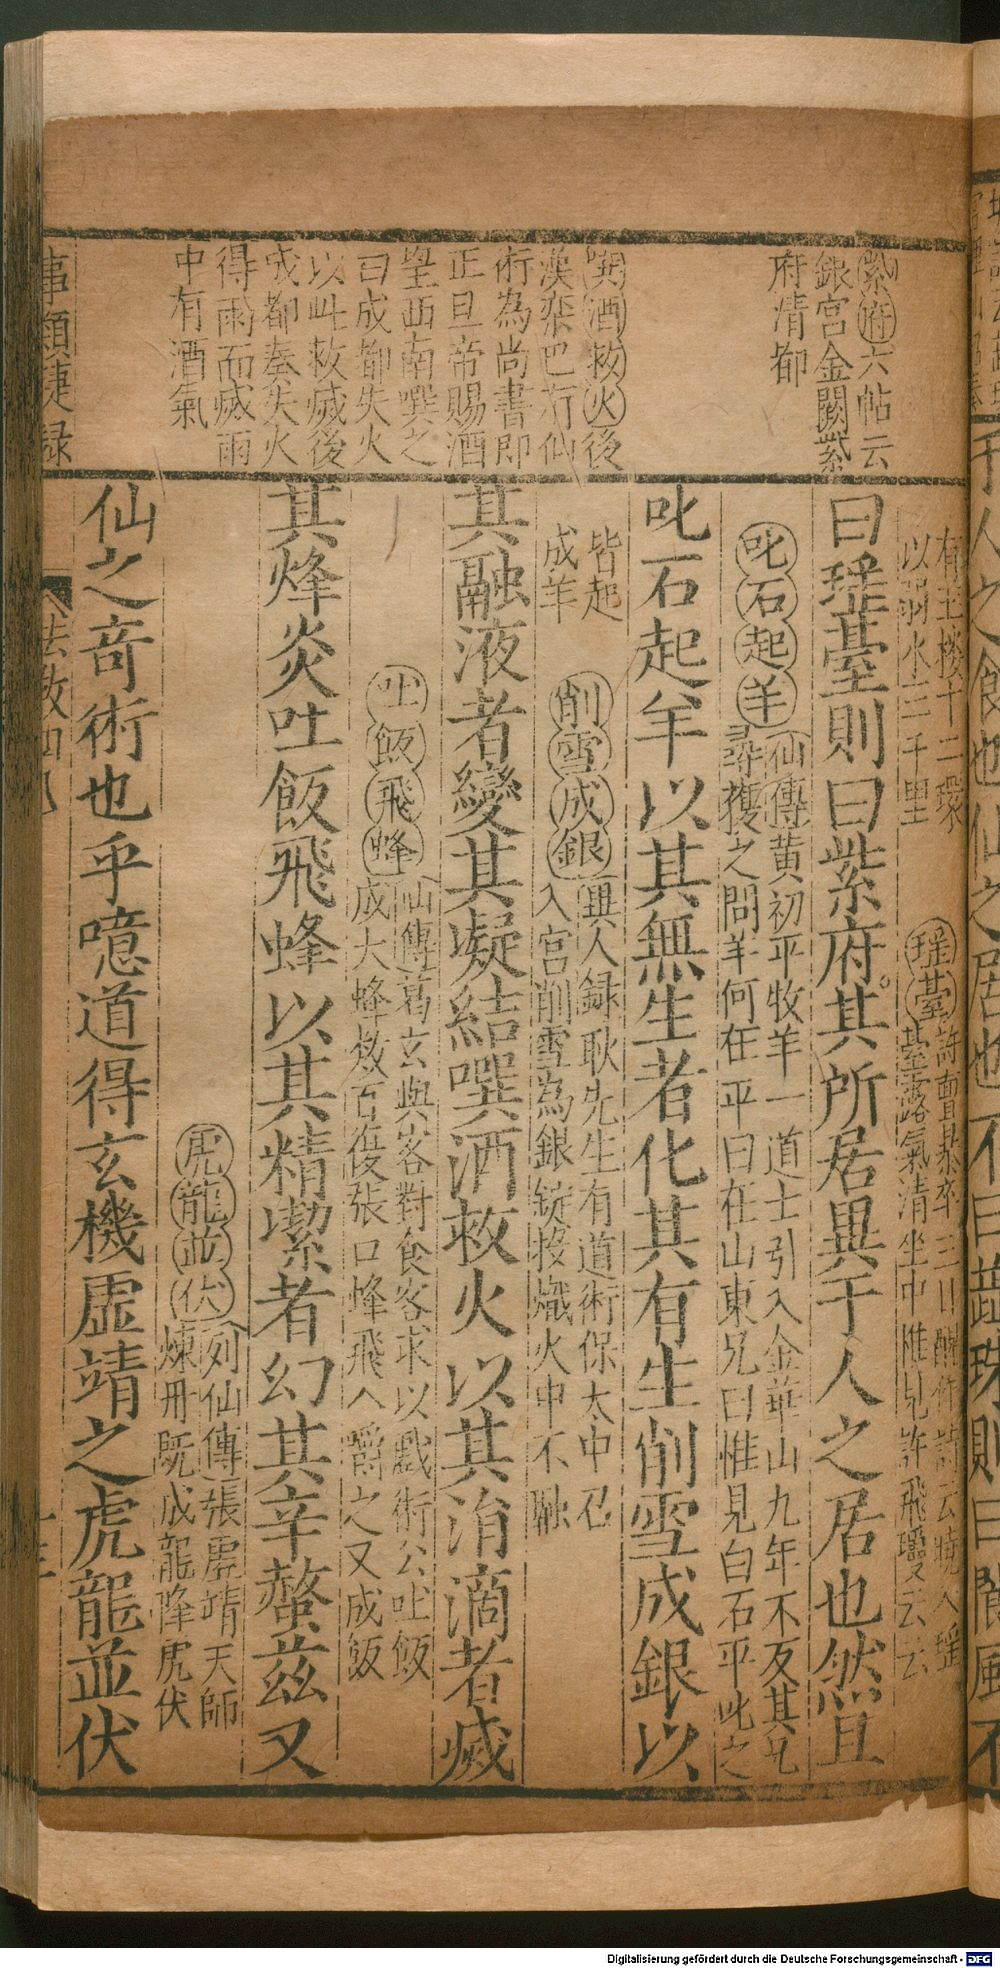 紫府六帖云
銀宮金闕紫
府清都
噀酒救火後
漢欒巴有仙
術為尚書郎
正旦帝賜酒
望西南噀之
曰成都失火
以此救滅後
成都奏失火
得雨而滅雨
中有酒氣
有玉樓十二環
以弱水三千里
瑶臺許瀍暴卒三日醒作詩云曉入瑶
臺露氣清坐中惟見許飛瓊云云
曰瑶臺則曰紫府其所居異于人之居也然且
叱石起羊仙傳黃初平牧羊一道士引入金華山九年不反其兄
尋獲之問羊何在平曰在山東兄曰惟見白石平叱之
叱石起羊以其無生者化其有生削雪成銀以
皆起
成羊
削雪成銀異人録耿先生有道術保大中召
入宮削雪為銀錠投熾火中不融
其融液者變其凝結噀酒救火以其消滴者滅
吐飯飛蜂仙傳葛玄與客對食客求以戲術公吐飯
成大蜂數百復張口蜂飛入嚼之又成飯
其烽炎吐飯飛蜂以其精潔者幻其辛螫茲又
虎龍並伏列仙傳張虛靖天師
煉丹既成龍降虎伏
仙之奇術也乎噫道得玄機虛靖之虎龍並伏
事類捷録
Digitalisierung gefördert durch die Deutsche Forschungsgemeinschaft - DFG